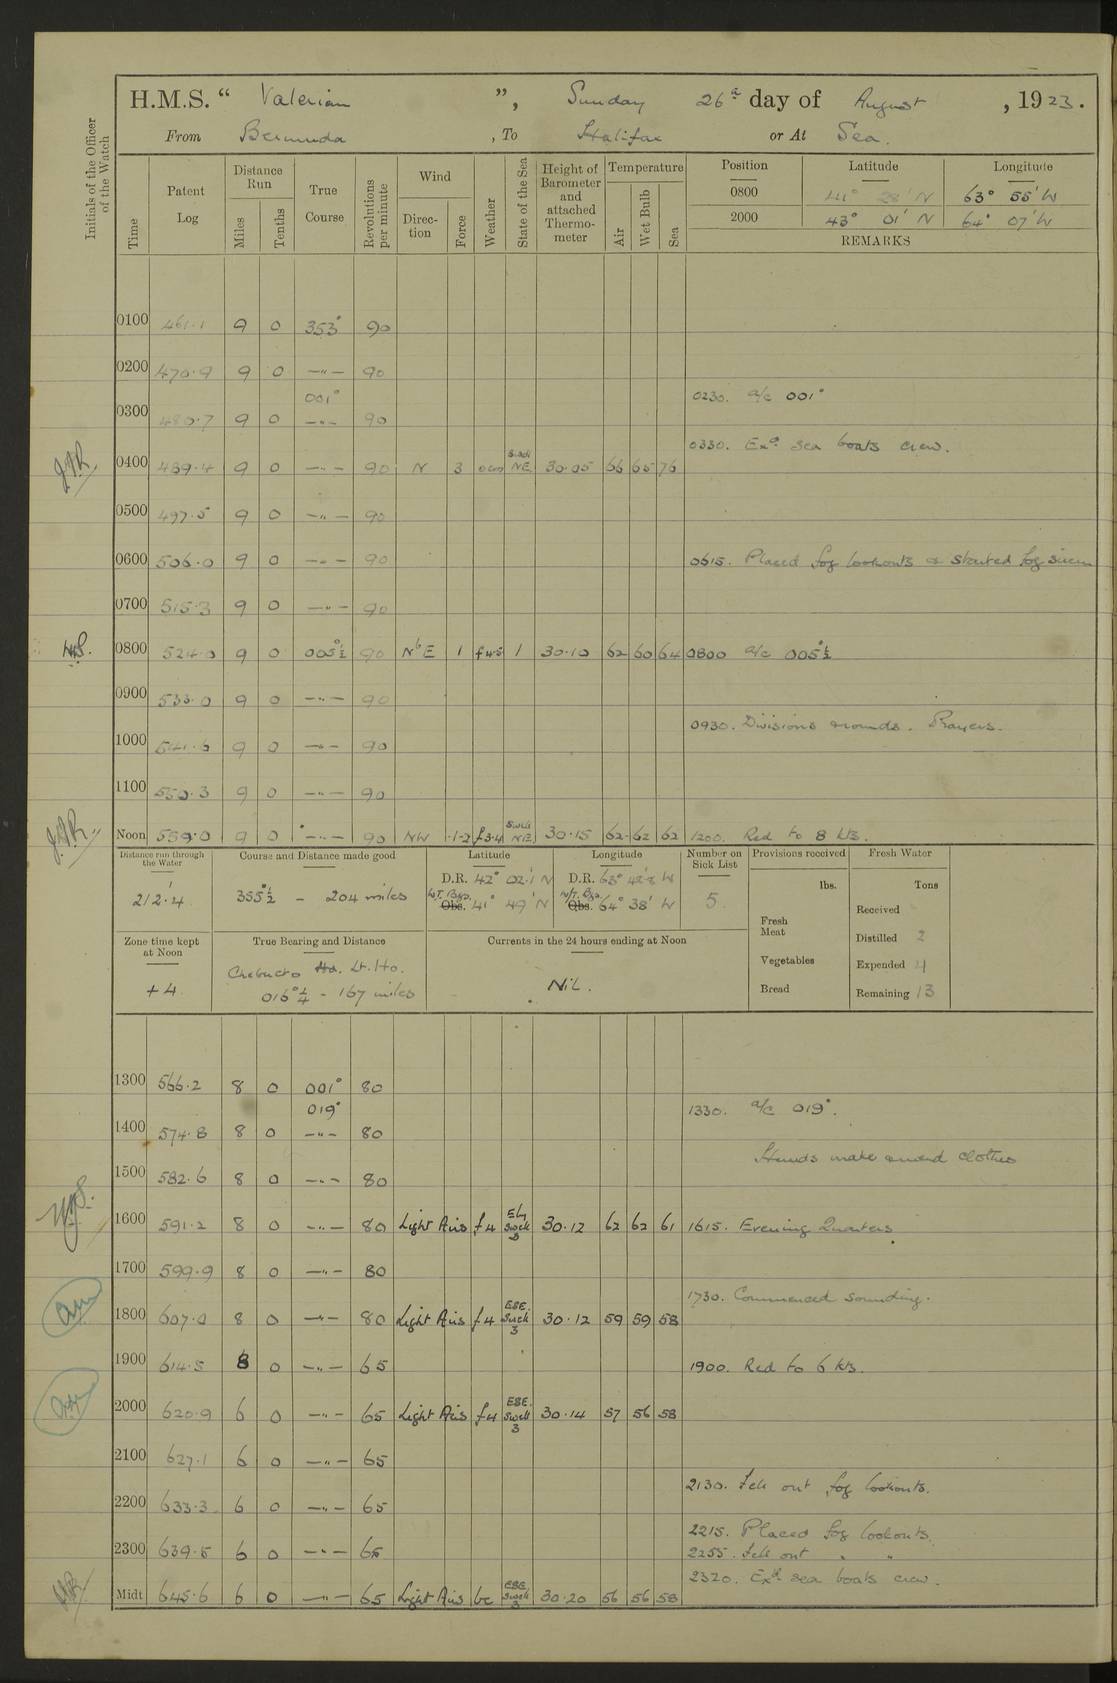 H.M.S. “ Valerian ”, Sunday 26th day of August , 1923.
From Bermuda , To Halifax or At Sea.
Initials of the Officer of the Watch
Time Patent Log Distance Run Miles Tenths True Course Revolutions per minute Wind Direction Force Weather State of the Sea Height of Barometer and attached Thermometer Temperature Air Wet Bulb Sea Position Latitude Longitude
0800 41° 28' N 63° 55' W
2000 43° 01' N 64° 07' W
REMARKS
0100 461.1 9 0 353° 90
0200 470.9 9 0 —"— 90
001° 0230. a/c 001°
0300 480.7 9 0 —"— 90
0330. Exd. sea boats crew.
0400 489.4 9 0 —"— 90 N 3 Swell NE 30.05 66 65 76
0500 497.5 9 0 —"— 90
0600 506.0 9 0 —"— 90 0615. Placed fog lookouts & started fog siren
0700 515.3 9 0 —"— 90
0800 524.0 9 0 005°½ 90 N b E 1 f 4.5 1 30.10 62 60 64 0800 a/c 005°½
0900 533.0 9 0 —"— 90
0930. Divisions rounds. Prayers.
1000 541.6 9 0 —"— 90
1100 550.3 9 0 —"— 90
Noon 559.0 9 0 —"— 90 NW 1-2 f 3.4 Swell NE 30.15 62 62 62 1200. Red to 8 kts.
Distance run through the Water Course and Distance made good Latitude Longitude Number on Sick List Provisions received Fresh Water
212.4 355°½ — 204 miles D.R. 42° 02.1' N D.R. 63° 42.8' W 5 lbs. Tons
W.T. Bgs. Obs. 41° 49' N W/T. Bgs. Obs. 64° 38' W Received
Fresh Meat Distilled 2
Zone time kept at Noon True Bearing and Distance Currents in the 24 hours ending at Noon Vegetables Expended 4
+4 Chebucto Hd. Lt. Ho. Nil. Bread Remaining 13
016°¼ - 167 miles
1300 566.2 8 0 001° 80
019° 1330. a/c 019°.
1400 574.8 8 0 —"— 80
Hands make & mend clothes
1500 582.6 8 0 —"— 80
1600 591.2 8 0 —"— 80 Light Airs f 4 E'ly Swell 3 30.12 62 62 61 1615. Evening Quarters
1700 599.9 8 0 —"— 80
1730. Commenced sounding.
1800 607.0 8 0 —"— 80 Light Airs f 4 ESE. Swell 3 30.12 59 59 58
1900 614.5 8 0 —"— 65 1900. Red to 6 kts.
2000 620.9 6 0 —"— 65 Light Airs f 4 ESE. Swell 3 30.14 57 56 58
2100 627.1 6 0 —"— 65
2130. Fell out fog lookouts.
2200 633.3 6 0 —"— 65
2215. Placed fog lookouts.
2300 639.5 6 0 —"— 65 2255. Fell out " "
2320. Exd. sea boats crew.
Midt 645.6 6 0 —"— 65 Light Airs bc ESE Swell 3 30.20 56 56 58